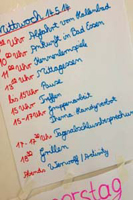 Mittwoch 14.5.14
Uhr Abfahrt vom Hollandbad
10 Uhr Ankunft in Bad Essen
11 Uhr Kennenlernspiele
13 Uhr Mittagessen
bis 15 Uhr Pause
15 Uhr Treffen
15-17 Uhr Gruppenarbeit
Thema Handyverbot
17-17 Uhr Tagesabschlussbesprechung
18 Uhr Grillen
Abends Werwolf / Activity
rstag